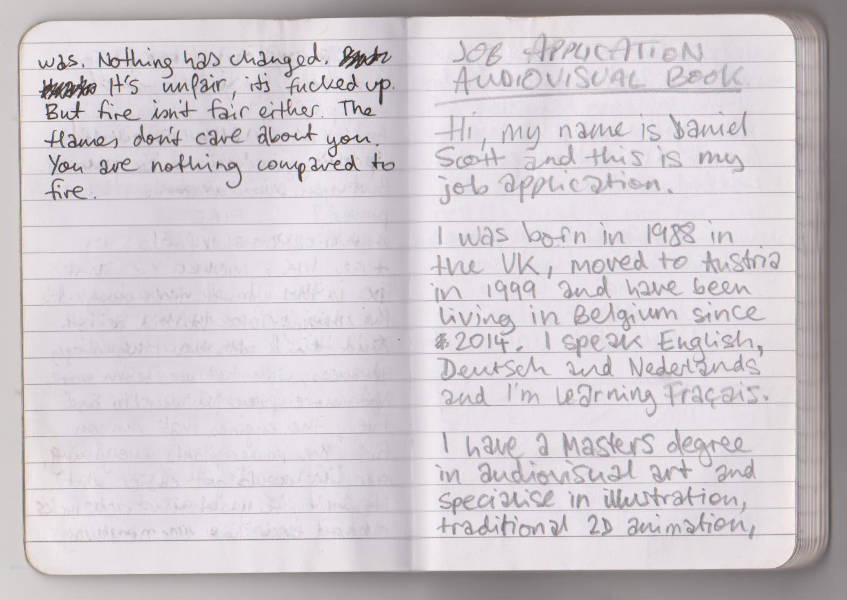 was. Nothing has changed.
It's unfair, it's fucked up.
But fire isn't fair either. The
flames don't care about you.
You are nothing compared to
fire.
JOB APPLICATION
AUDIOVISUAL BOOK
Hi, my name is Daniel
Scott and this is my
job application.
I was born in 1988 in
the UK, moved to Austria
in 1999 and have been
living in Belgium since
2014. I speak English,
Deutsch and Nederlands
and I'm learning Fraçais.
I have a Masters degree
in audiovisual art and
specialise in illustration,
traditional 2D animation,